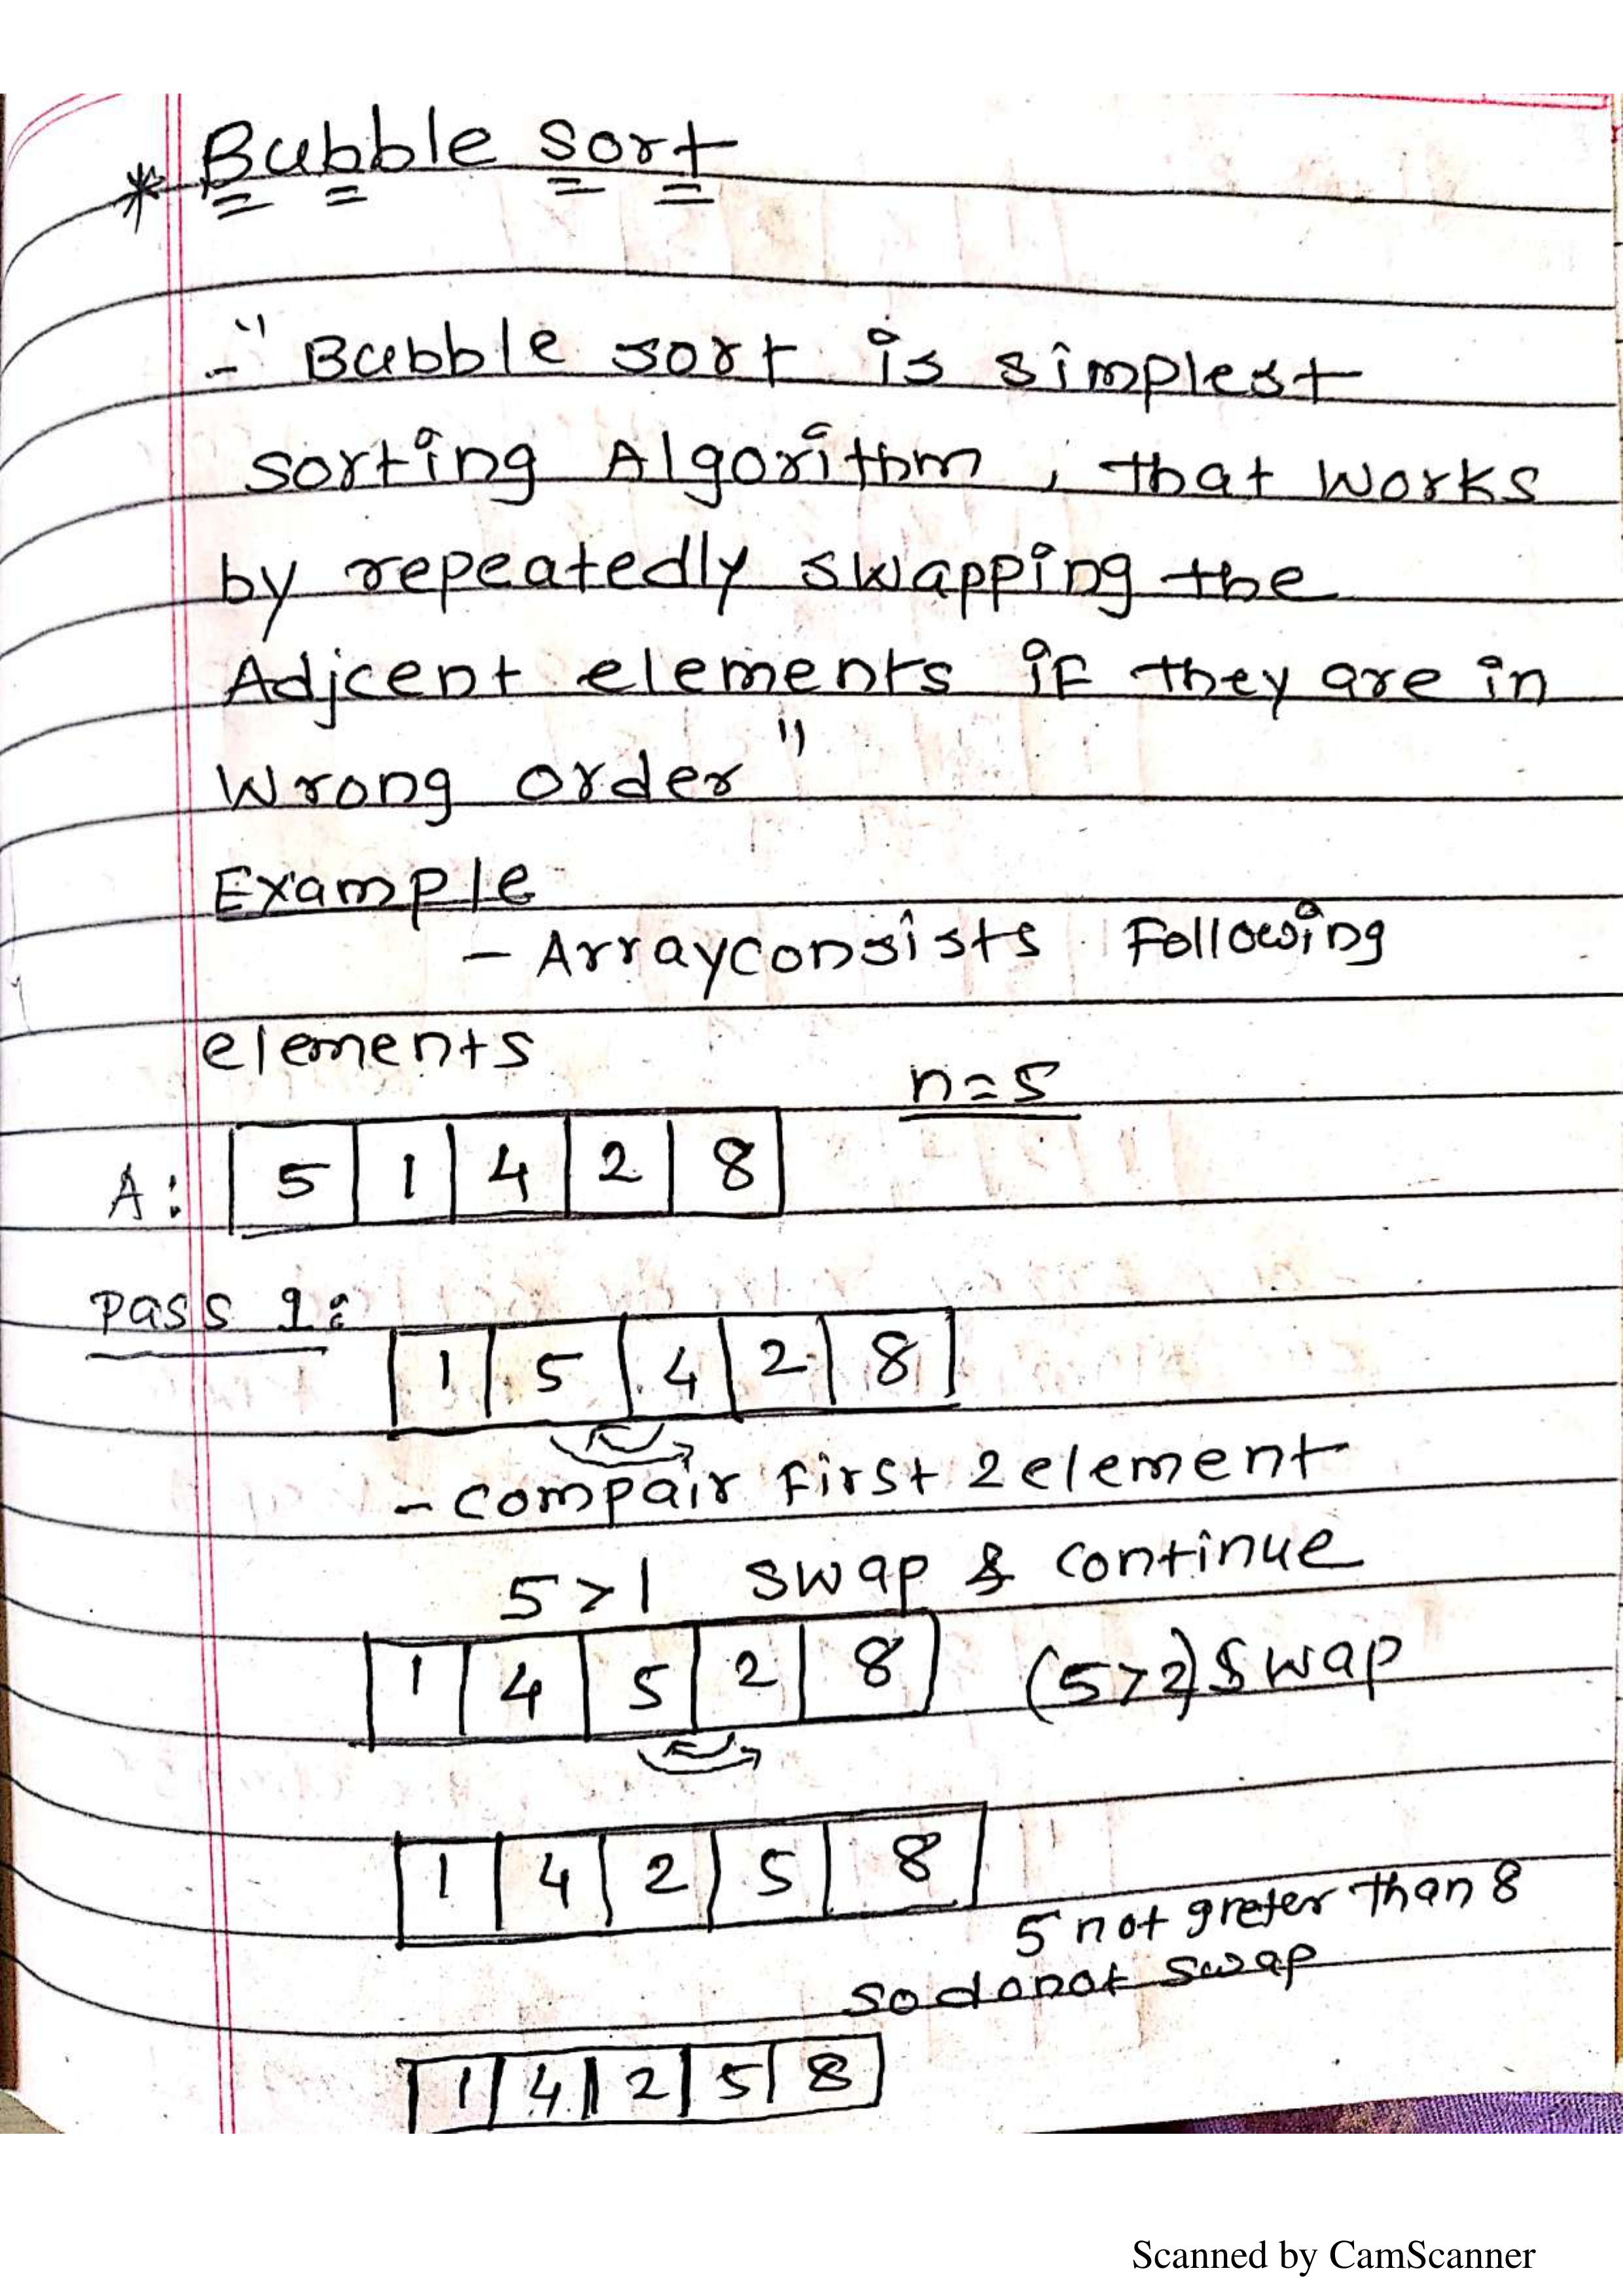 * Bubble sort
- " Bubble sort is simplest
sorting Algorithm, that works
by repeatedly swapping the
Adjcent elements if they are in
Wrong order "
Example
- Array consists Following
elements
n=5
A: 5 1 4 2 8
Pass 1:
1 5 4 2 8
- compair First 2 element
5>1 swap & continue
1 4 5 2 8 (5>2) swap
1 4 2 5 8
5 not greter than 8
so donot swap
1 4 2 5 8
Scanned by CamScanner